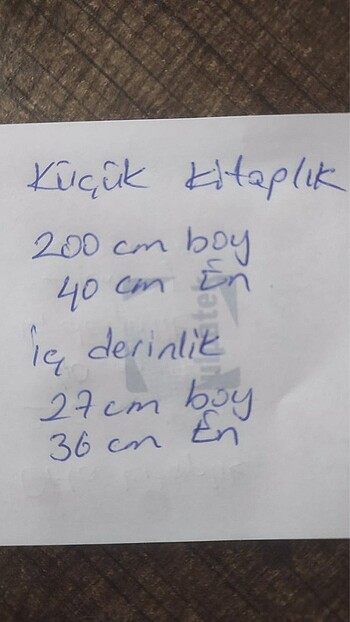 Küçük kitaplık
200 cm boy
40 cm En
İç derinlik
27 cm boy
36 cm En